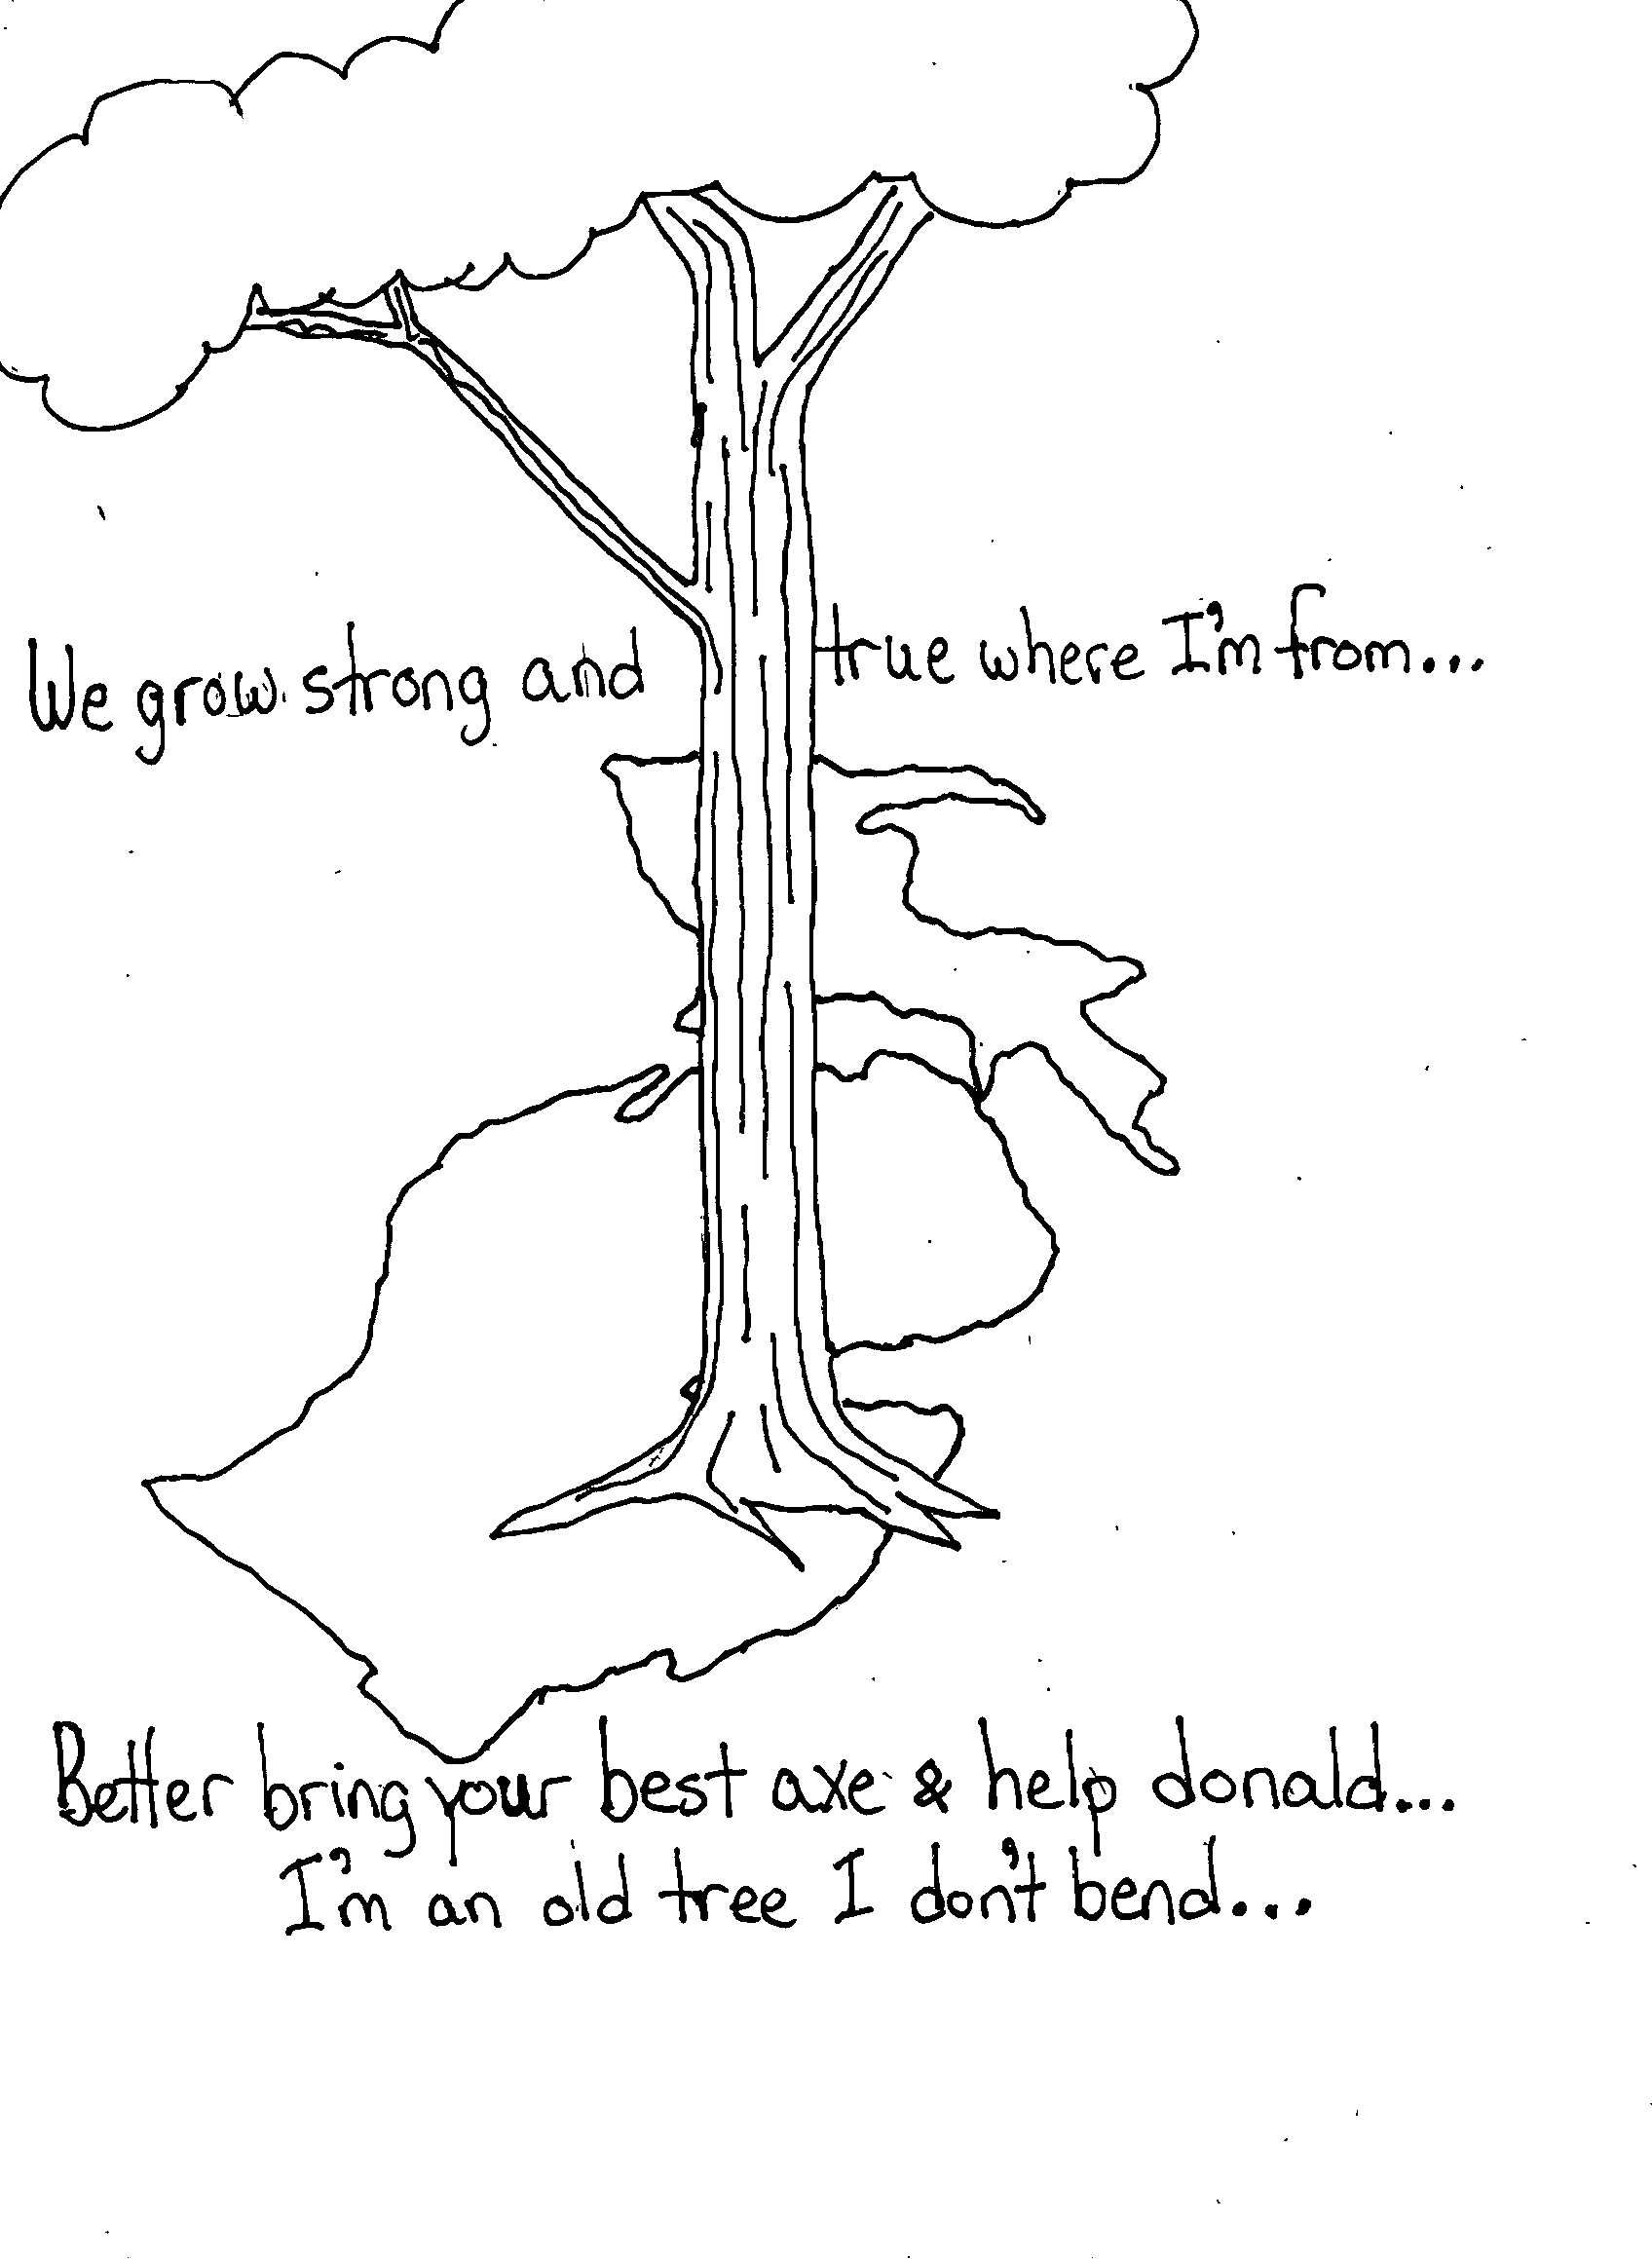 We grow strong and true where I'm from...
Better bring your best axe & help donald...
I'm an old tree I don't bend...